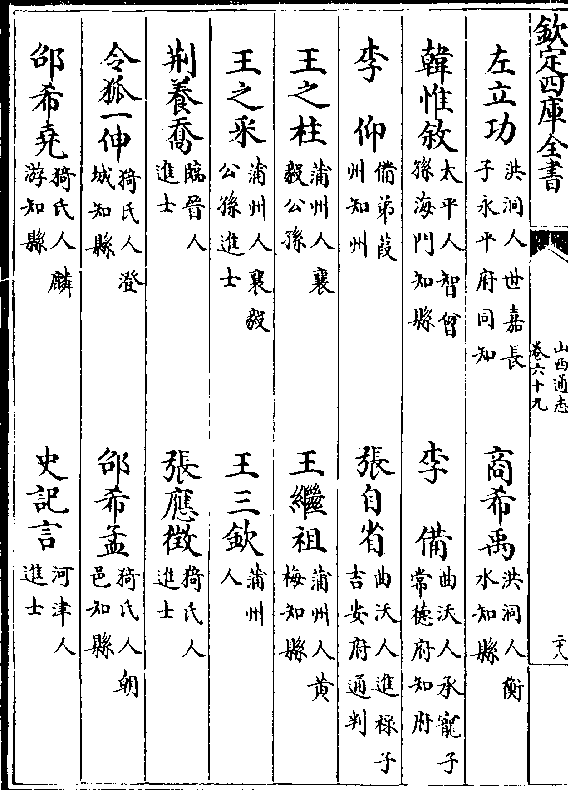 欽定四庫全書
山西通志
卷六十九
二六
左立功 洪洞人世嘉長子永平府同知
商希禹 洪洞人衡水知縣
韓惟敘 太平人智曾孫海門知縣
李備 曲沃人承寵子常德府知府
李仰 備弟葭州知州
張自省 曲沃人進祿子吉安府通判
王之柱 蒲州人襄毅公孫
王繼祖 蒲州人黃梅知縣
王之采 蒲州人襄毅公孫進士
王三欽 蒲州人
荆養喬 臨晉人進士
張應徵 猗氏人進士
令狐一伸 猗氏人澄城知縣
邵希孟 猗氏人朝邑知縣
邵希堯 猗氏人麟游知縣
史記言 河津人進士